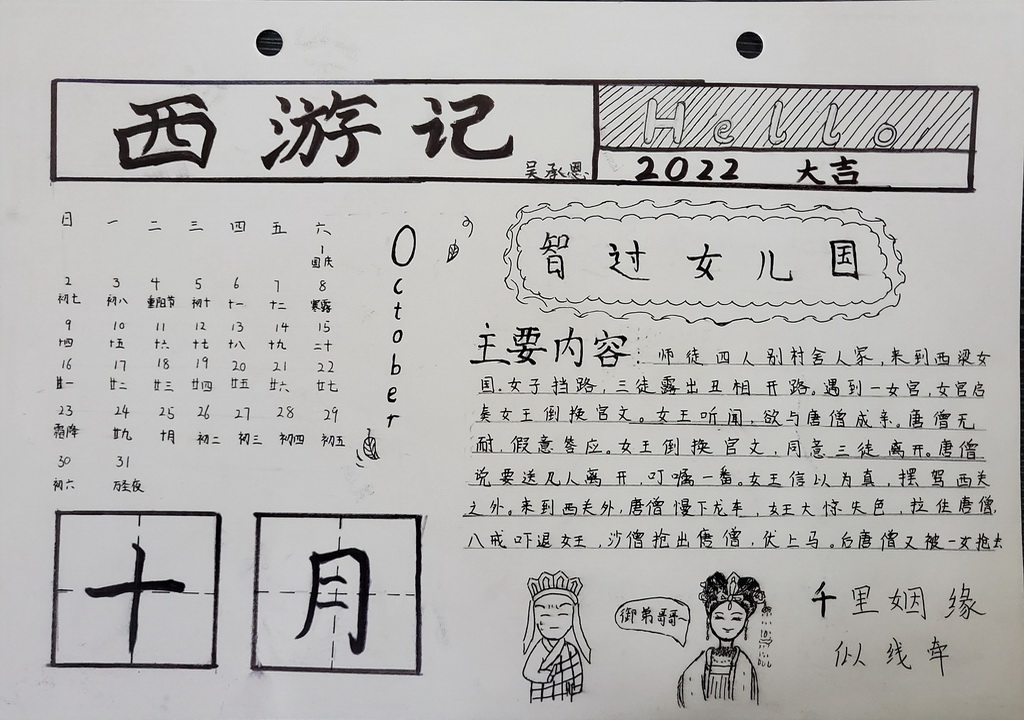 西游记
吴承恩
Hello
2022 大吉
日 一 二 三 四 五 六
1
国庆
2 3 4 5 6 7 8
初七 初八 重阳节 初十 十一 十二 寒露
9 10 11 12 13 14 15
十四 十五 十六 十七 十八 十九 二十
16 17 18 19 20 21 22
廿一 廿二 廿三 廿四 廿五 廿六 廿七
23 24 25 26 27 28 29
霜降 廿九 十月 初二 初三 初四 初五
30 31
初六 万圣夜
October
十月
智过女儿国
主要内容:师徒四人别村舍人家,来到西梁女
国.女子挡路,三徒露出丑相开路。遇到一女官,女官启
奏女王倒换官文。女王听闻,欲与唐僧成亲。唐僧无
耐,假意答应。女王倒换官文,同意三徒离开。唐僧
说要送几人离开,叮嘱一番。女王信以为真,摆驾西关
之外。来到西关外,唐僧慢下龙车,女王大惊失色,拉住唐僧,
八戒吓退女王,沙僧抢出唐僧,伏上马。后唐僧又被一女抢去
御弟哥哥~
千里姻缘
似线牵